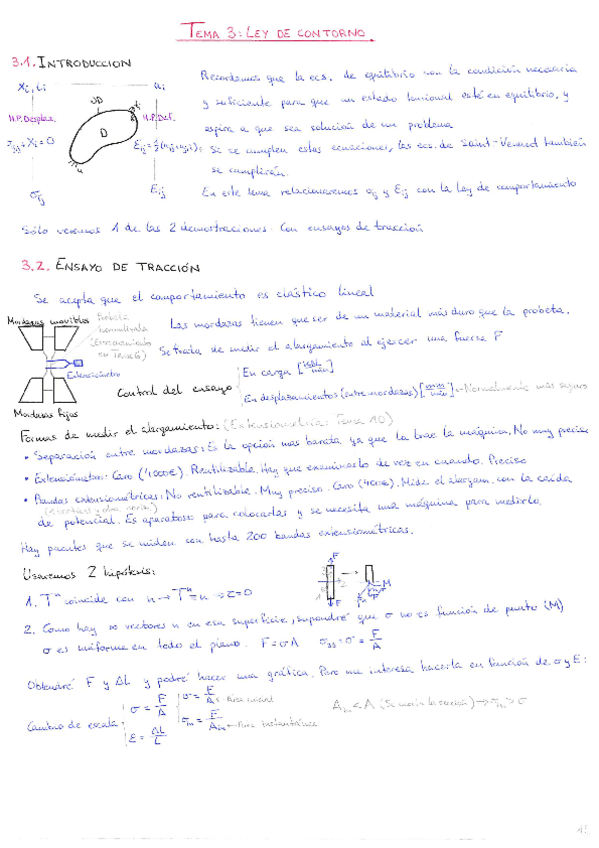 TEMA 3: LEY DE CONTORNO.
3.1. INTRODUCCION
Xi, ti
ui
∂D
ti
D
H.P.Desplaz.
H.P.Def.
Recordamos que la ecs. de equilibrio son la condición necesaria
y suficiente para que un estado tensional esté en equilibrio, y
aspira a que sea solución de un problema
σij,j + Xi = 0
Eij = ½(ui,j+uj,i)
Si se cumplen estas ecuaciones, las ecs. de Saint-Venant también
se cumplirán.
σij
Eij
En este tema relacionaremos σij y Eij con la Ley de comportamiento
Sólo veremos 1 de las 2 demostraciones. Con ensayos de tracción
3.2. ENSAYO DE TRACCIÓN
Se acepta que el comportamiento es elástico lineal
Mordazas movibles
Probeta
normalizada
(Entrenamiento
en Tema 6)
Extensiómetro
Mordazas fijas
Las mordazas tienen que ser de un material más duro que la probeta.
Se trata de medir el alargamiento al ejercer una fuerza F
Control del ensayo
En carga
En desplazamientos (entre mordazas) [mm/min] ← Normalmente más seguro
Formas de medir el alargamiento: (Extensiometría: Tema 10)
• Separación entre mordazas: Es la opción más barata ya que la trae la máquina. No muy preciso
• Extensiómetro: Caro (4000€). Reutilizable. Hay que examinarlo de vez en cuando. Preciso
• Bandas extensiométricas: No reutilizable. Muy preciso. Caro (40€). Mide el alargam. con la caída
de potencial. Es aparatoso para colocarlas y se necesita una máquina para medirlo.
Hay puentes que se miden con hasta 200 bandas extensiométricas.
Usaremos 2 hipótesis:
F
F
M
1. Tⁿ coincide con n → Tⁿ = n → τ=0
2. Como hay ∞ vectores n en esa superficie, supondré que σ no es función de punto (M)
σ es uniforme en todo el plano. F = σA σ = F/A
Obtendré F y ΔL y podré hacer una gráfica. Pero me interesa hacerla en función de σ y E:
Cambio de escala
σ = F/A
ε = ΔL/L
σ = F/A ← Área inicial
σin = F/Ain ← Área instantánea
Ain < A → σin > σ